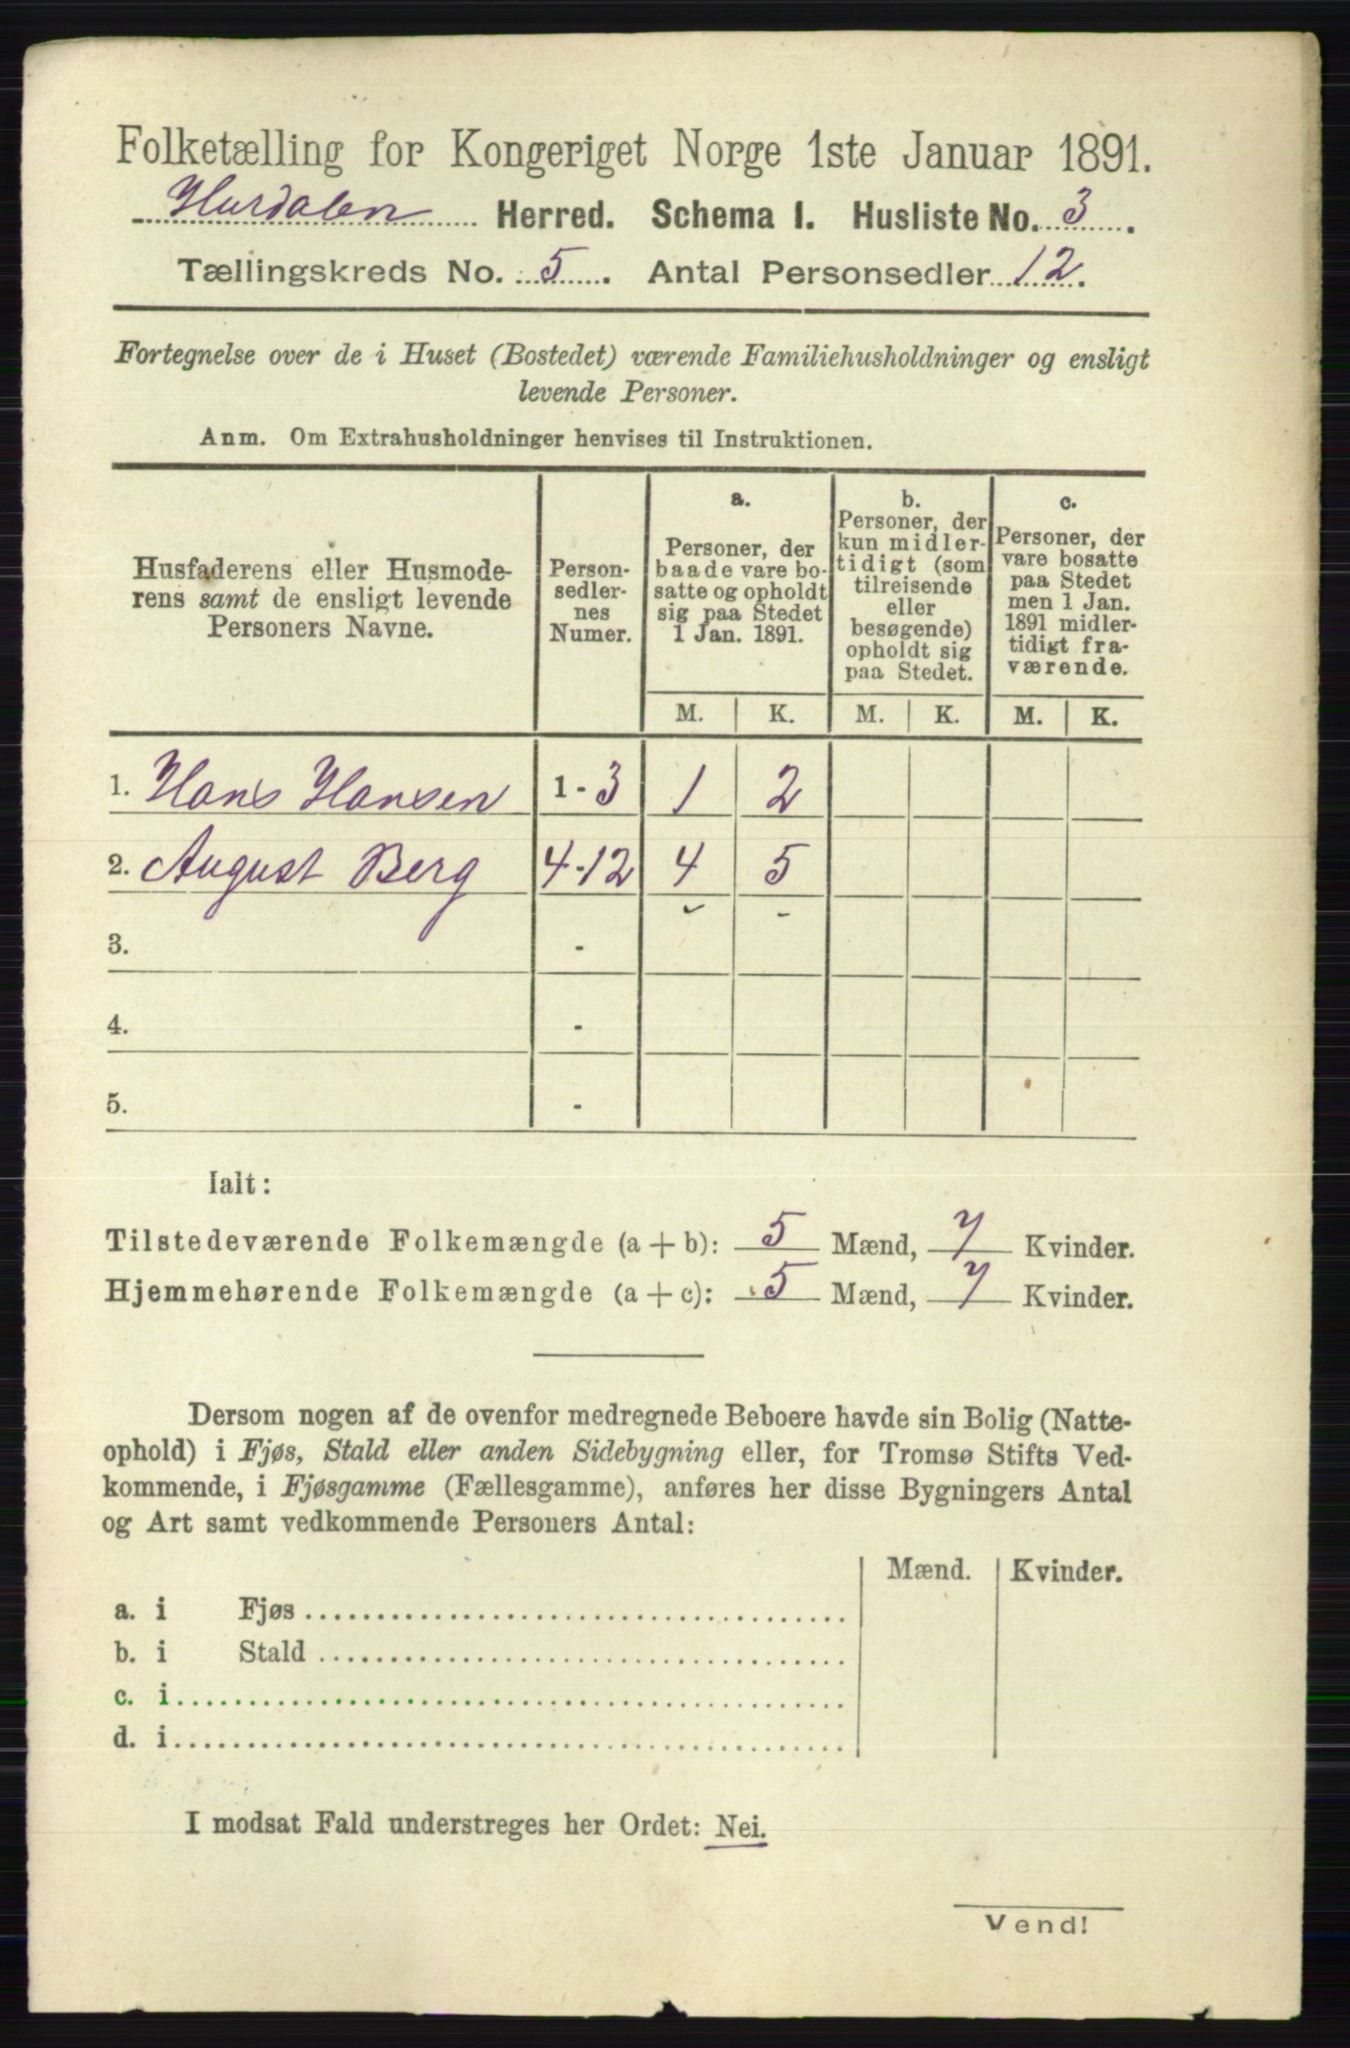 Folketælling for Kongeriget Norge 1ste Januar 1891.
Hurdalen Herred. Schema I. Husliste No. 3.
Tællingskreds No. 5. Antal Personsedler 12.
Fortegnelse over de i Huset (Bostedet) værende Familiehusholdninger og ensligt
levende Personer.
Anm. Om Extrahusholdninger henvises til Instruktionen.
Husfaderens eller Husmode-
rens samt de ensligt levende
Personers Navne.
Person-
sedler-
nes
Numer.
a.
Personer, der
baade vare bo-
satte og opholdt
sig paa Stedet
1 Jan. 1891.
b.
Personer, der
kun midler-
tidigt (som
tilreisende
eller
besøgende)
opholdt sig
paa Stedet.
c.
Personer, der
vare bosatte
paa Stedet
men 1 Jan.
1891 midler-
tidigt fra-
værende.
M. K. M. K. M. K.
1. Hans Hansen 1-3 1 2
2. August Berg 4-12 4 5
3. -
4. -
5. -
Ialt:
Tilstedeværende Folkemængde (a + b): 5 Mænd, 7 Kvinder.
Hjemmehørende Folkemængde (a + c): 5 Mænd, 7 Kvinder.
Dersom nogen af de ovenfor medregnede Beboere havde sin Bolig (Natte-
ophold) i Fjøs, Stald eller anden Sidebygning eller, for Tromsø Stifts Ved-
kommende, i Fjøsgamme (Fællesgamme), anføres her disse Bygningers Antal
og Art samt vedkommende Personers Antal:
Mænd. Kvinder.
a. i Fjøs
b. i Stald
c. i
d. i
I modsat Fald understreges her Ordet: Nei.
Vend!